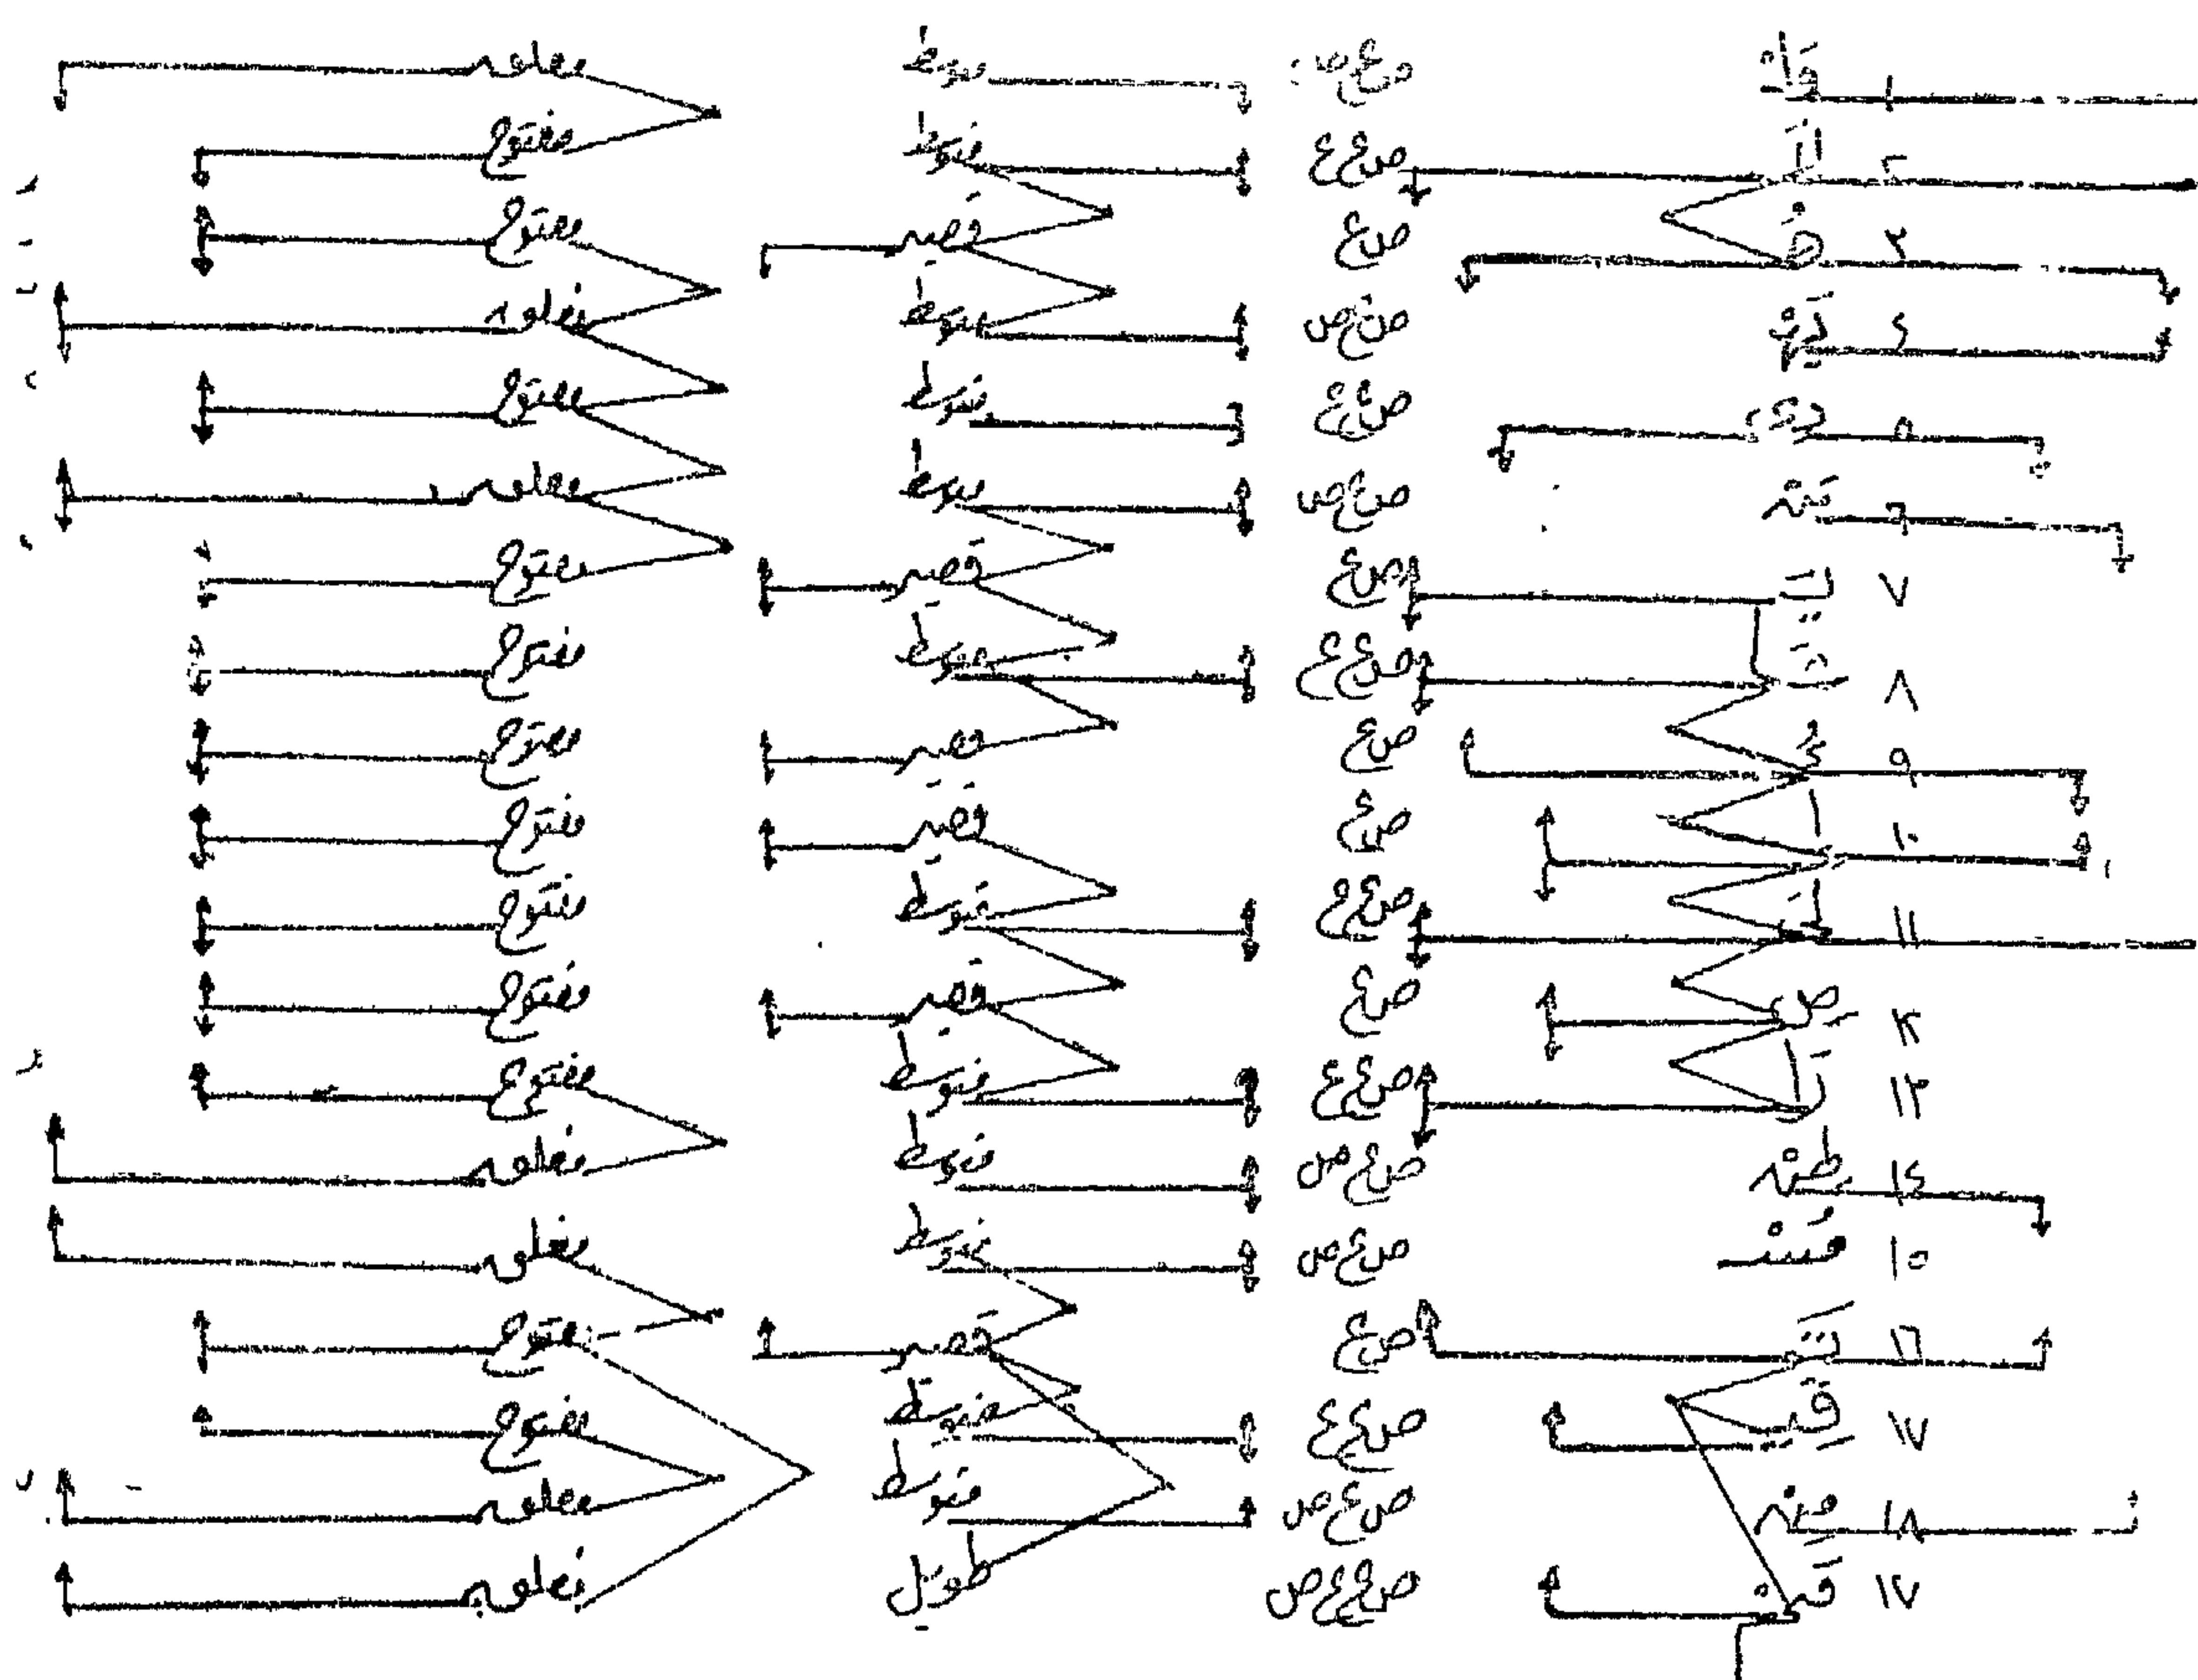 ١ وَلْ ص ع ص متوسط مغلق
٢ لَا ص ع ع متوسط مفتوح
٣ هُ ص ع قصير مفتوح
٤ يَهْ ص ع ص متوسط مغلق
٥ دِي ص ع ع متوسط مفتوح
٦ مَنْ ص ع ص متوسط مغلق
٧ يَـ ص ع قصير مفتوح
٨ ص ع ع متوسط مفتوح
٩ ءُ ص ع قصير مفتوح
١٠ إِ ص ع قصير مفتوح
١١ لَى ص ع ع متوسط مفتوح
١٢ صِ ص ع قصير مفتوح
١٣ رَا ص ع ع متوسط مفتوح
١٤ طِنْ ص ع ص متوسط مغلق
١٥ مُسْـ ص ع ص متوسط مغلق
١٦ تَـ ص ع قصير مفتوح
١٧ قِيـ ص ع ع متوسط مفتوح
١٨ مِنْ ص ع ص متوسط مغلق
١٧ ص ع ع ص طويل مغلق